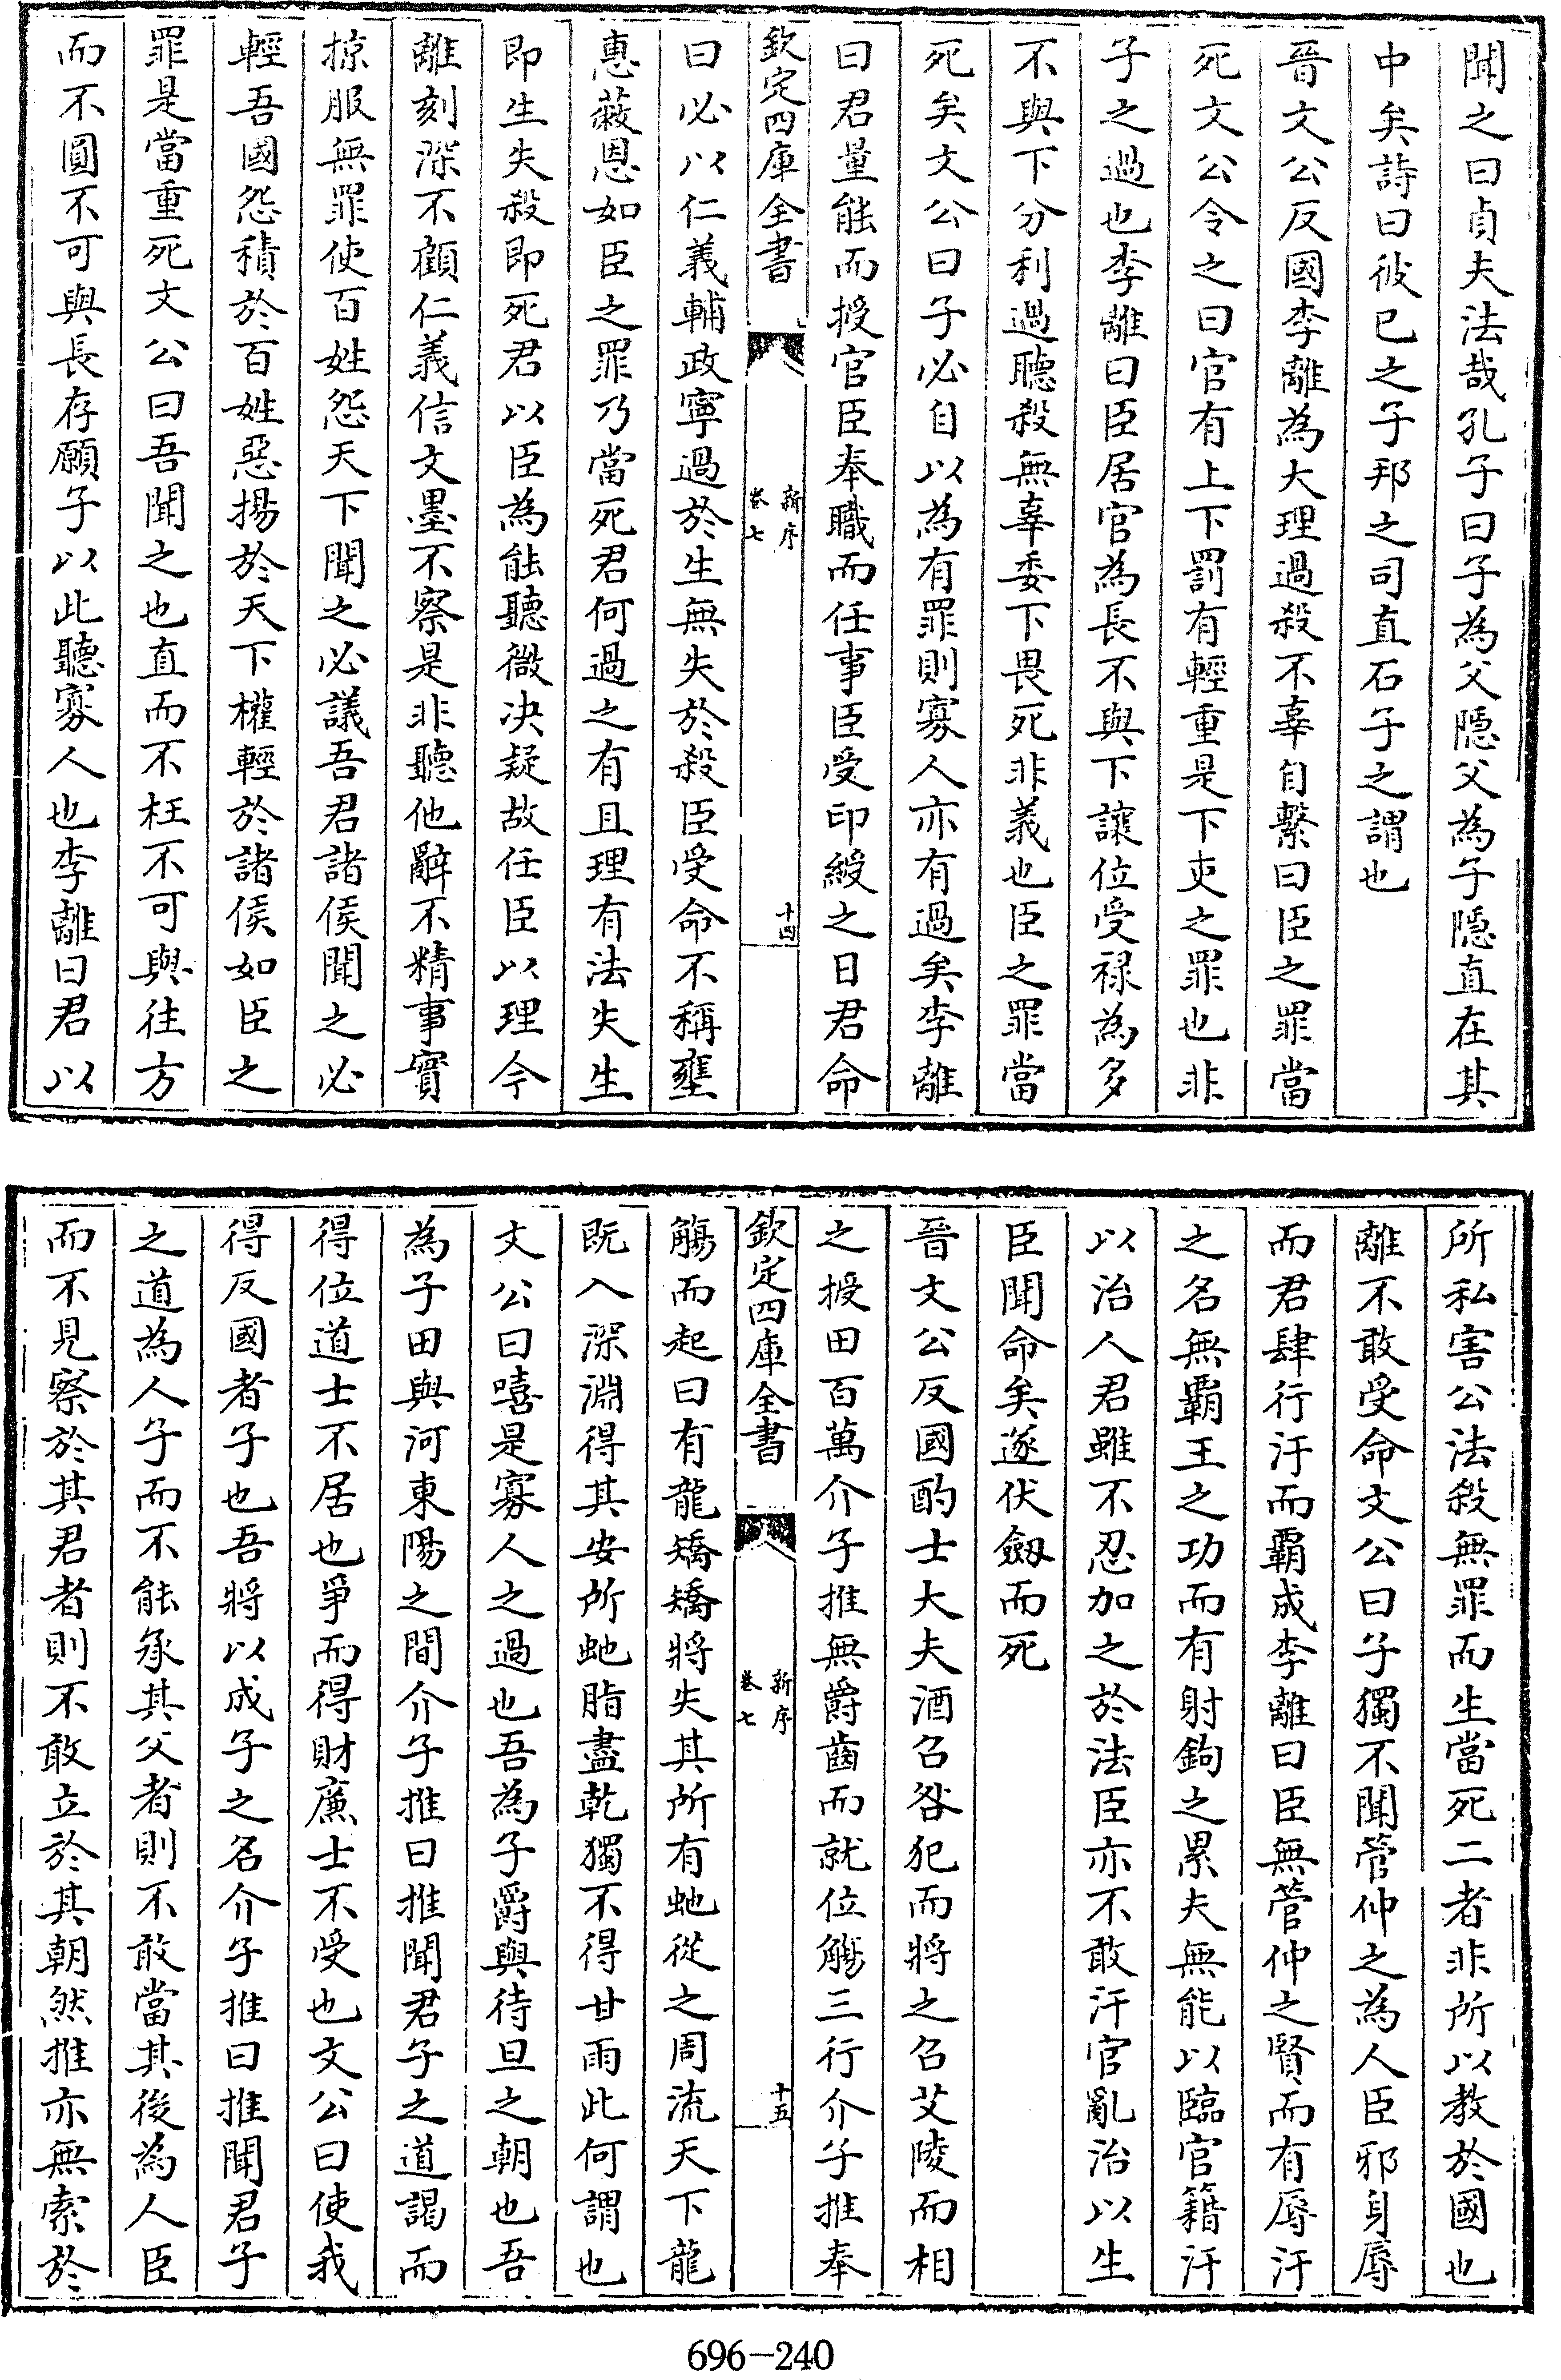 聞之曰貞夫法哉孔子曰子為父隱父為子隱直在其
中矣詩曰彼已之子邦之司直石子之謂也
晉文公反國李離為大理過殺不辜自繫曰臣之罪當
死文公令之曰官有上下罰有輕重是下吏之罪也非
子之過也李離曰臣居官為長不與下讓位受祿為多
不與下分利過聽殺無辜委下畏死非義也臣之罪當
死矣文公曰子必自以為有罪則寡人亦有過矣李離
曰君量能而授官臣奉職而任事臣受印綬之日君命
欽定四庫全書
新序
卷七
十四
曰必以仁義輔政寧過於生無失於殺臣受命不稱壅
惠蔽恩如臣之罪乃當死君何過之有且理有法失生
即生失殺即死君以臣為能聽微決疑故任臣以理今
離刻深不顧仁義信文墨不察是非聽他辭不精事實
掠服無罪使百姓怨天下聞之必議吾君諸侯聞之必
輕吾國怨積於百姓惡揚於天下權輕於諸侯如臣之
罪是當重死文公曰吾聞之也直而不枉不可與往方
而不圓不可與長存願子以此聽寡人也李離曰君以
所私害公法殺無罪而生當死二者非所以教於國也
離不敢受命文公曰子獨不聞管仲之為人臣邪身辱
而君肆行汙而霸成李離曰臣無管仲之賢而有辱汙
之名無霸王之功而有射鉤之累夫無能以臨官籍汙
以治人君雖不忍加之於法臣亦不敢汙官亂治以生
臣聞命矣遂伏劒而死
晉文公反國酌士大夫酒召咎犯而將之召艾陵而相
之授田百萬介子推無爵齒而就位觴三行介子推奉
欽定四庫全書
新序
卷七
十五
觴而起曰有龍矯矯將失其所有虵從之周流天下龍
既入深淵得其安所虵脂盡乾獨不得甘雨此何謂也
文公曰嘻是寡人之過也吾為子爵與待旦之朝也吾
為子田與河東陽之間介子推曰推聞君子之道謁而
得位道士不居也爭而得財廉士不受也文公曰使我
得反國者子也吾將以成子之名介子推曰推聞君子
之道為人子而不能承其父者則不敢當其後為人臣
而不見察於其君者則不敢立於其朝然推亦無索於
696-240